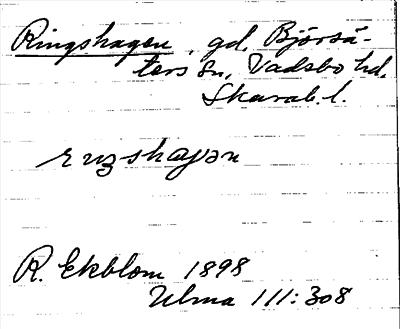 Ringshagen, gd, Björsä-
ters sn, Vadsbo hd,
Skarab. l.
R. Ekblom 1898
Ulma 111:308